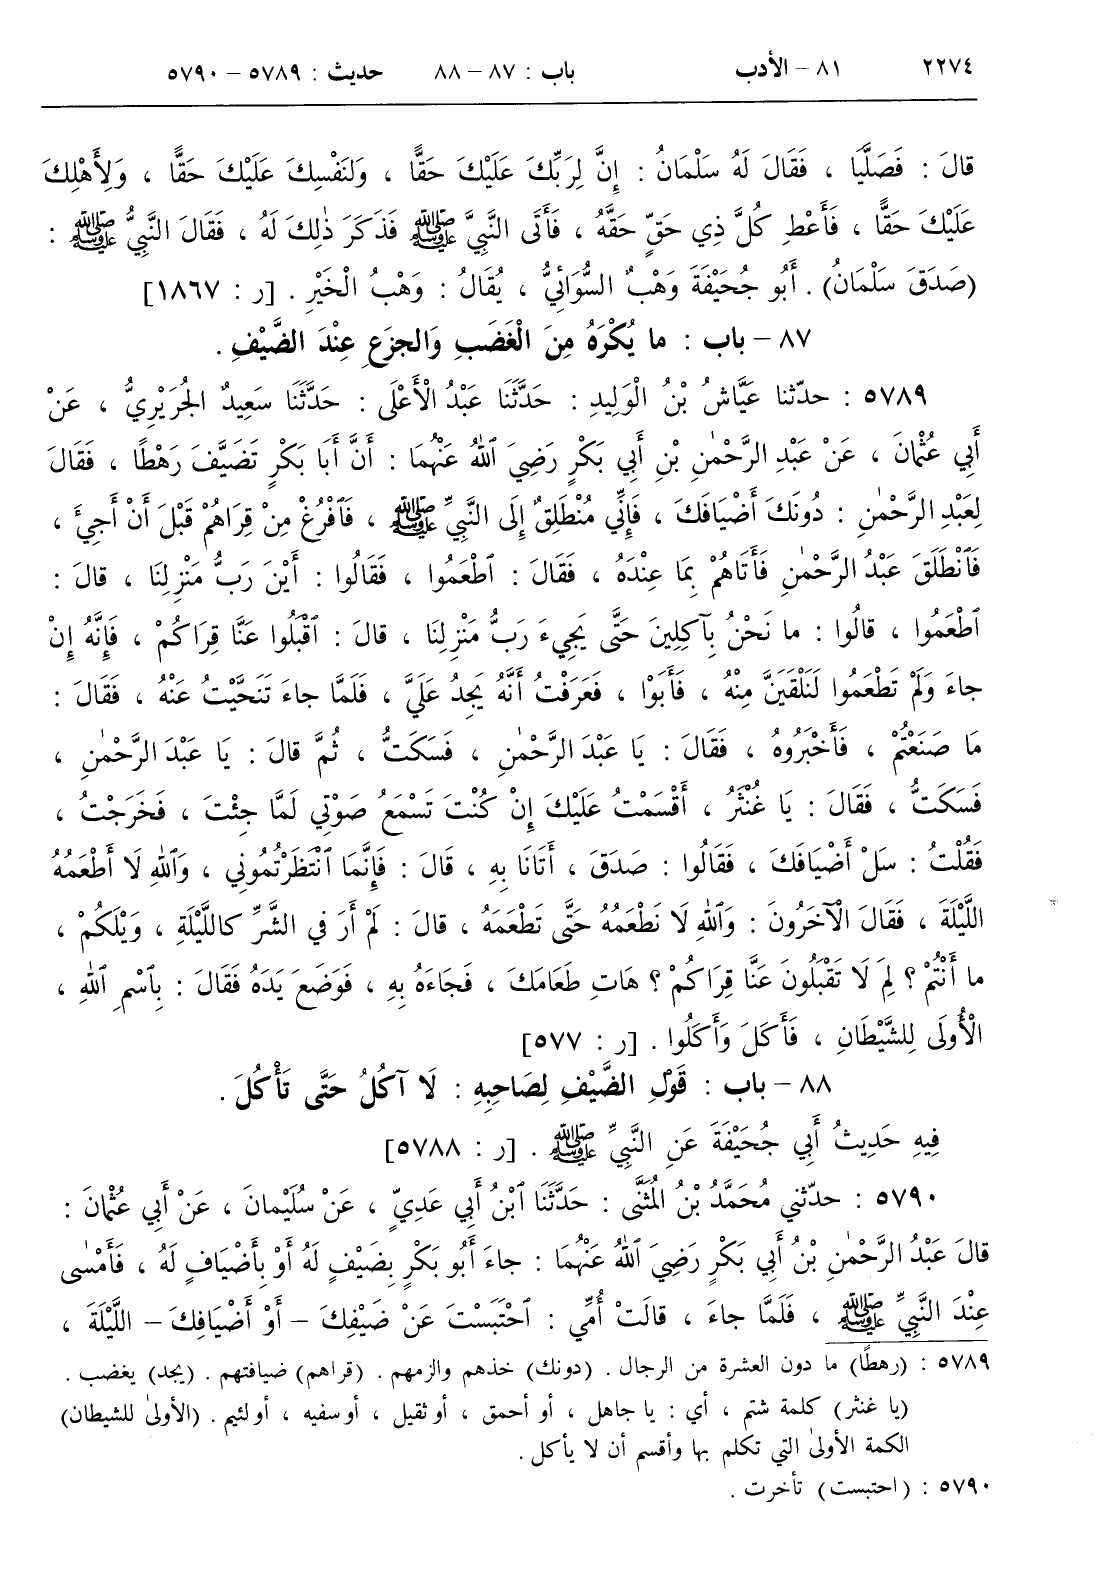 ٢٢٧٤ ٨١ – الأدب باب : ٨٧ – ٨٨ حديث : ٥٧٨٩ – ٥٧٩٠
قالَ : فَصَلَّيَا ، فَقَالَ لَهُ سَلْمَانُ : إِنَّ لِرَبِّكَ عَلَيْكَ حَقًّا ، وَلِنَفْسِكَ عَلَيْكَ حَقًّا ، وَلِأَهْلِكَ
عَلَيْكَ حَقًّا ، فَأَعْطِ كُلَّ ذِي حَقٍّ حَقَّهُ ، فَأَتَى النَّبِيَّ ﷺ فَذَكَرَ ذٰلِكَ لَهُ ، فَقَالَ النَّبِيُّ ﷺ :
(صَدَقَ سَلْمَانُ) . أَبُو جُحَيْفَةَ وَهْبٌ السُّوَائِيُّ ، يُقَالُ : وَهْبُ الْخَيْرِ . [ر : ١٨٦٧]
٨٧ – باب : ما يُكْرَهُ مِنَ الْغَضَبِ وَالجزَعِ عِنْدَ الضَّيْفِ .
٥٧٨٩ : حدّثنا عَيَّاشُ بْنُ الْوَلِيدِ : حَدَّثَنَا عَبْدُ الْأَعْلَى : حَدَّثَنَا سَعِيدٌ الجُرَيْرِيُّ ، عَنْ
أَبِي عُثْمانَ ، عَنْ عَبْدِ الرَّحْمٰنِ بْنِ أَبِي بَكْرٍ رَضِيَ ٱللهُ عَنْهُمَا : أَنَّ أَبَا بَكْرٍ تَضَيَّفَ رَهْطًا ، فَقَالَ
لِعَبْدِ الرَّحْمٰنِ : دُونَكَ أَضْيَافَكَ ، فَإِنِّي مُنْطَلِقٌ إِلَى النَّبِيِّ ﷺ ، فَٱفْرُغْ مِنْ قِرَاهُمْ قَبْلَ أَنْ أَجِئَ ،
فَٱنْطَلَقَ عَبْدُ الرَّحْمٰنِ فَأَتَاهُمْ بِمَا عِنْدَهُ ، فَقَالَ : ٱطْعَمُوا ، فَقَالُوا : أَيْنَ رَبُّ مَنْزِلِنَا ، قالَ :
ٱطْعَمُوا ، قالُوا : ما نَحْنُ بِآكِلِينَ حَتَّى يَجِيءَ رَبُّ مَنْزِلِنَا ، قالَ : ٱقْبَلُوا عَنَّا قِرَاكُمْ ، فَإِنَّهُ إِنْ
جاءَ وَلَمْ تَطْعَمُوا لَنَلْقَيَنَّ مِنْهُ ، فَأَبَوْا ، فَعَرَفْتُ أَنَّهُ يَجِدُ عَلَيَّ ، فَلَمَّا جاءَ تَنَحَّيْتُ عَنْهُ ، فَقَالَ :
مَا صَنَعْتُمْ ، فَأَخْبَرُوهُ ، فَقَالَ : يَا عَبْدَ الرَّحْمٰنِ ، فَسَكَتُّ ، ثُمَّ قالَ : يَا عَبْدَ الرَّحْمٰنِ ،
فَسَكَتُّ ، فَقَالَ : يَا غُنْثَرُ ، أَقْسَمْتُ عَلَيْكَ إِنْ كُنْتَ تَسْمَعُ صَوْتِي لَمَّا جِئْتَ ، فَخَرَجْتُ ،
فَقُلْتُ : سَلْ أَضْيَافَكَ ، فَقَالُوا : صَدَقَ ، أَتَانَا بِهِ ، قَالَ : فَإِنَّمَا ٱنْتَظَرْتُمُونِي ، وَٱللهِ لَا أَطْعَمُهُ
اللَّيْلَةَ ، فَقَالَ الْآخَرُونَ : وَٱللهِ لَا نَطْعَمُهُ حَتَّى تَطْعَمَهُ ، قالَ : لَمْ أَرَ فِي الشَّرِّ كاللَّيْلَةِ ، وَيْلَكُمْ ،
ما أَنْتُمْ ؟ لِمَ لَا تَقْبَلُونَ عَنَّا قِرَاكُمْ ؟ هَاتِ طَعَامَكَ ، فَجَاءَهُ بِهِ ، فَوَضَعَ يَدَهُ فَقَالَ : بِٱسْمِ ٱللهِ ،
الْأُولَى لِلشَّيْطَانِ ، فَأَكَلَ وَأَكَلُوا . [ر : ٥٧٧]
٨٨ – باب : قَوْلِ الضَّيْفِ لِصَاحِبِهِ : لَا آكُلُ حَتَّى تَأْكُلَ .
فِيهِ حَدِيثُ أَبِي جُحَيْفَةَ عَنِ النَّبِيِّ ﷺ . [ر : ٥٧٨٨]
٥٧٩٠ : حدّثني مُحَمَّدُ بْنُ المُثَنَّى : حَدَّثَنَا ٱبْنُ أَبِي عَدِيٍّ ، عَنْ سُلَيْمانَ ، عَنْ أَبِي عُثْمانَ :
قالَ عَبْدُ الرَّحْمٰنِ بْنُ أَبِي بَكْرٍ رَضِيَ ٱللهُ عَنْهُمَا : جاءَ أَبُو بَكْرٍ بِضَيْفٍ لَهُ أَوْ بِأَضْيَافٍ لَهُ ، فَأَمْسٰى
عِنْدَ النَّبِيِّ ﷺ ، فَلَمَّا جاءَ ، قالَتْ أُمِّي : ٱحْتَبَسْتَ عَنْ ضَيْفِكَ – أَوْ أَضْيَافِكَ – اللَّيْلَةَ ،
٥٧٨٩ : (رهطًا) ما دون العشرة من الرجال . (دونك) خذهم والزمهم . (قراهم) ضيافتهم . (يجد) يغضب .
(يا غنثر) كلمة شتم ، أي : يا جاهل ، أو أحمق ، أو ثقيل ، أو سفيه ، أو لئيم . (الأولىٰ للشيطان)
الكمة الأولىٰ التي تكلم بها وأقسم أن لا يأكل .
٥٧٩٠ : (احتبست) تأخرت .